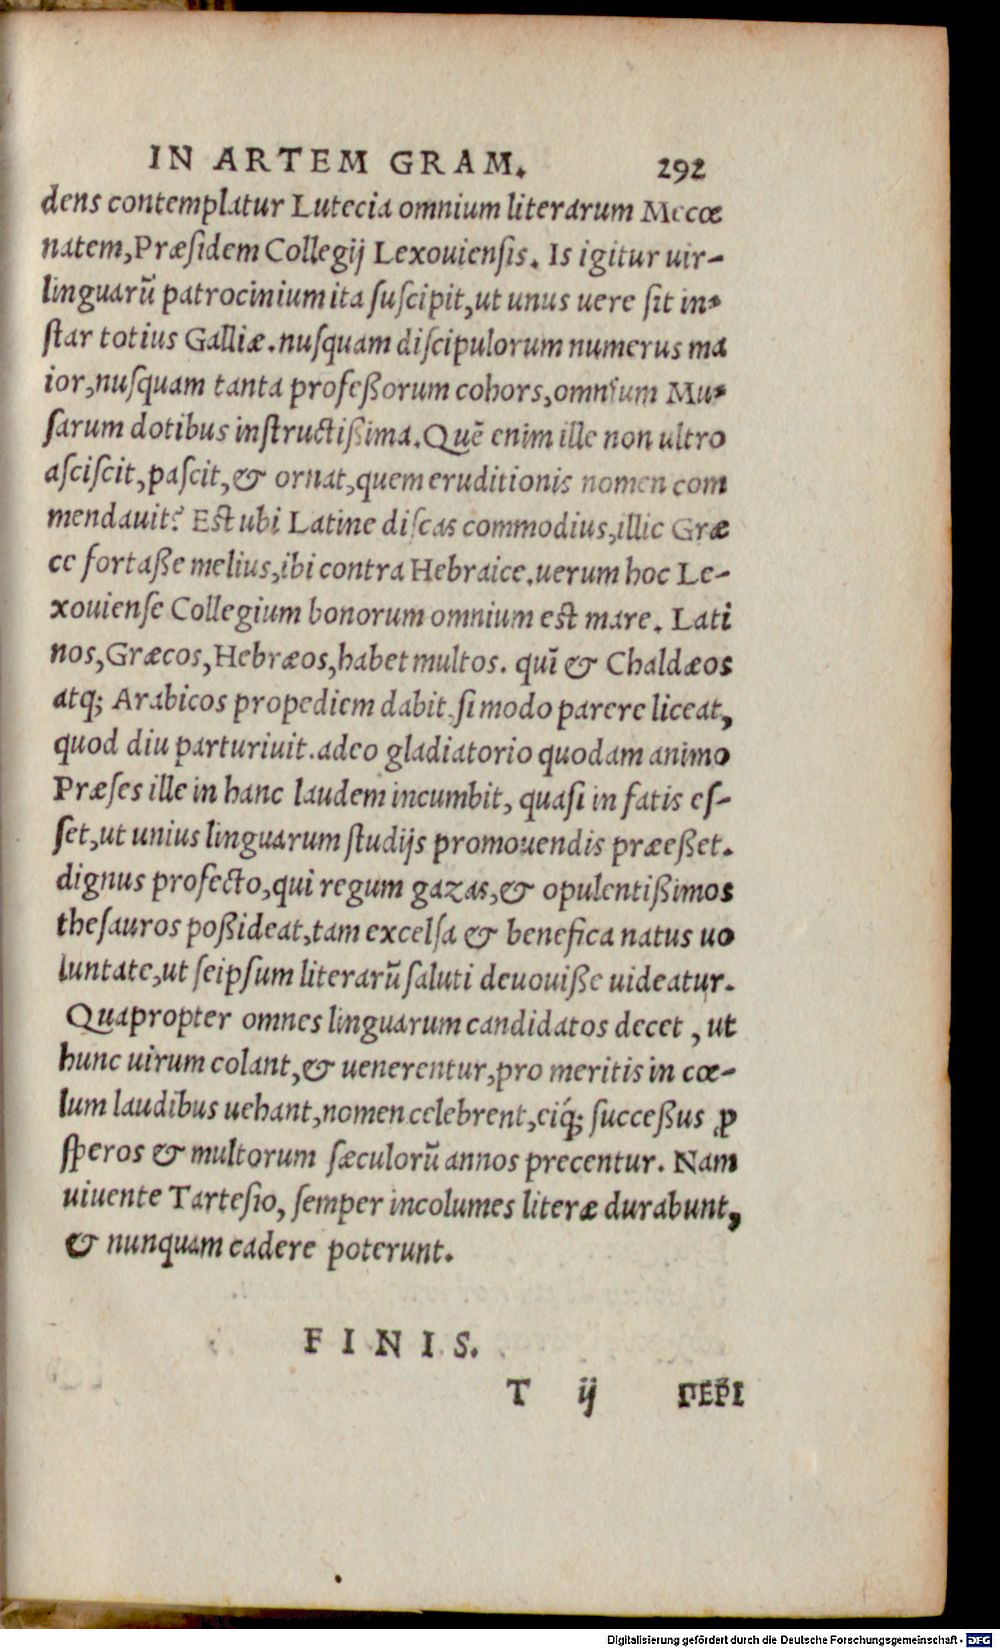 IN ARTEM GRAM. 292
dens contemplatur Lutecia omnium literarum Mecœ
natem, Præsidem Collegij Lexouiensis. Is igitur uir-
linguarũ patrocinium ita suscipit, ut unus uere sit in-
star totius Galliæ. nusquam discipulorum numerus ma
ior, nusquam tanta profeßorum cohors, omnium Mu-
sarum dotibus instructißima. Quẽ enim ille non ultro
asciscit, pascit, & ornat, quem eruditionis nomen com
mendauit? Est ubi Latine discas commodius, illic Græ
ce fortaße melius, ibi contra Hebraice. uerum hoc Le-
xouiense Collegium bonorum omnium est mare. Lati
nos, Græcos, Hebræos, habet multos. quĩ & Chaldæos
atq; Arabicos propediem dabit, si modo parere liceat,
quod diu parturiuit. adeo gladiatorio quodam animo
Præses ille in hanc laudem incumbit, quasi in fatis es-
set, ut unius linguarum studijs promouendis præeßet.
dignus profecto, qui regum gazas, & opulentißimos
thesauros poßideat, tam excelsa & benefica natus uo
luntate, ut seipsum literarũ saluti deuouiße uideatur.
Quapropter omnes linguarum candidatos decet, ut
hunc uirum colant, & uenerentur, pro meritis in cœ-
lum laudibus uehant, nomen celebrent, eiq́; succeßus ꝓ
speros & multorum sæculorũ annos precentur. Nam
uiuente Tartesio, semper incolumes literæ durabunt,
& nunquam cadere poterunt.
FINIS.
T ij ΠΕΡΙ
Digitalisierung gefördert durch die Deutsche Forschungsgemeinschaft - DFG